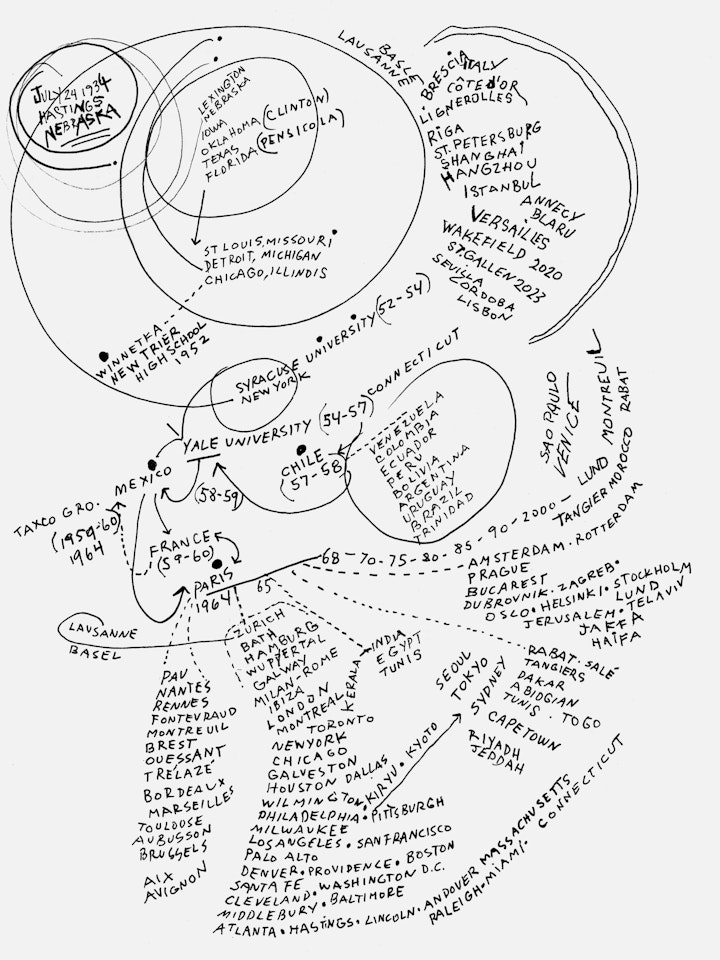 JULY 24 1934
HASTINGS
NEBRASKA
LEXINGTON
NEBRASKA
IOWA
OKLAHOMA (CLINTON)
TEXAS
FLORIDA (PENSICOLA)
ST LOUIS, MISSOURI
DETROIT, MICHIGAN
CHICAGO, ILLINOIS
BASLE
LAUSANNE
BRESCIA ITALY
CÔTE D'OR
LIGNEROLLES
RIGA
ST. PETERSBURG
SHANGHAI
HANGZHOU
ISTANBUL
ANNECY
BLARU
VERSAILLES
WAKEFIELD 2020
ST.GALLEN 2023
SEVILLA
CORDOBA
LISBON
WINNETKA
NEW TRIER
HIGH SCHOOL
1952
SYRACUSE UNIVERSITY (52-54)
NEW YORK
YALE UNIVERSITY (54-57) CONNECTICUT
CHILE
(57-58)
VENEZUELA
COLOMBIA
ECUADOR
PERU
BOLIVIA
ARGENTINA
URUGUAY
BRAZIL
TRINIDAD
SAO PAULO
VENICE
MONTREUIL
RABAT
MEXICO
(58-59)
TAXCO GRO.
(1959-60)
1964
FRANCE
(59-60)
PARIS
1964
65
68-70-75-80-85-90-2000- LUND
TANGIER MOROCCO
AMSTERDAM. ROTTERDAM
PRAGUE
BUCAREST
DUBROVNIK. ZAGREB.
OSLO. HELSINKI. STOCKHOLM
JERUSALEM. LUND
JAFFA TELAVIV
HAIFA
LAUSANNE
BASEL
ZURICH
BATH
HAMBURG
WUPPERTAL
GALWAY
MILAN-ROME
IBIZA
LONDON
MONTREAL
TORONTO
NEWYORK
CHICAGO
GALVESTON
HOUSTON DALLAS
WILMINGTON. KIRYU. KYOTO
PHILADELPHIA. PITTSBURGH
MILWAUKEE
LOSANGELES. SANFRANCISCO
PALO ALTO
DENVER. PROVIDENCE. BOSTON
SANTA FE
CLEVELAND. WASHINGTON D.C.
MIDDLEBURY. BALTIMORE
ATLANTA. HASTINGS. LINCOLN. ANDOVER MASSACHUSETTS
RALEIGH. MIAMI. CONNECTICUT
KERALA
INDIA
EGYPT
TUNIS
SEOUL
TOKYO
SYDNEY
RABAT. SALÉ
TANGIERS
DAKAR
ABIDGIAN
TUNIS. TOGO
CAPETOWN
RIYADH
JEDDAH
PAU
NANTES
RENNES
FONTEVRAUD
MONTREUIL
BREST
OUESSANT
TRÉLAZÉ
BORDEAUX
MARSEILLES
TOULOUSE
AUBUSSON
BRUGGELS
AIX
AVIGNON